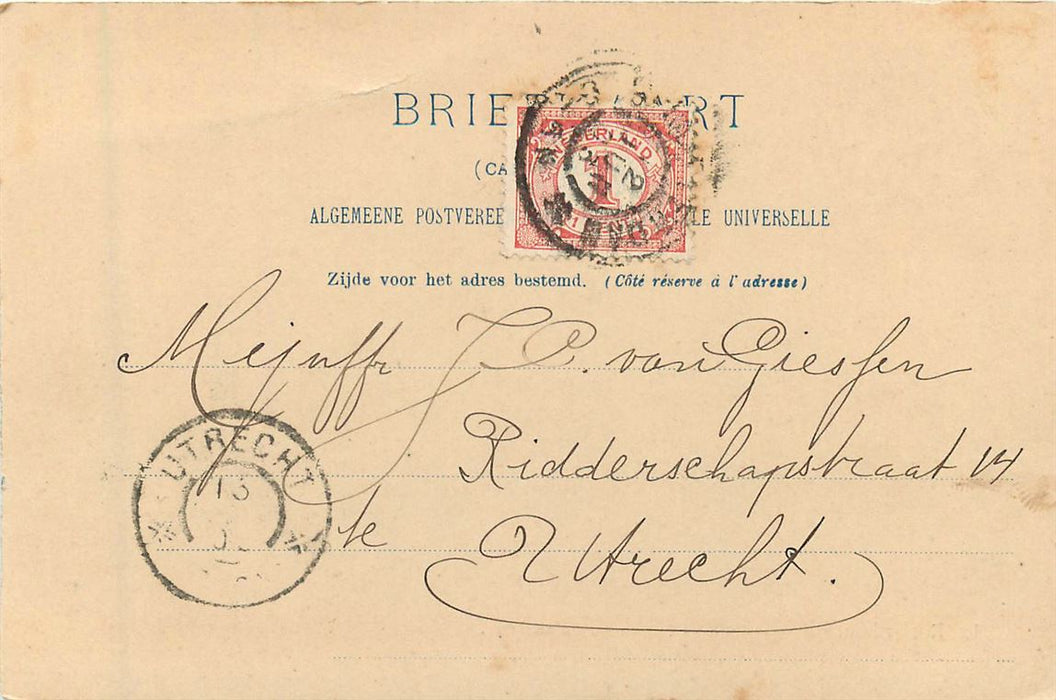 BRIE ART
(CA
ALGEMEENE POSTVEREE LE UNIVERSELLE
NEDERLAND
1
Zijde voor het adres bestemd. (Côté réserve à l'adresse)
Mejuffr J. C. van Giessen
Ridderschapstraat 14
te
Utrecht.
UTRECHT
13